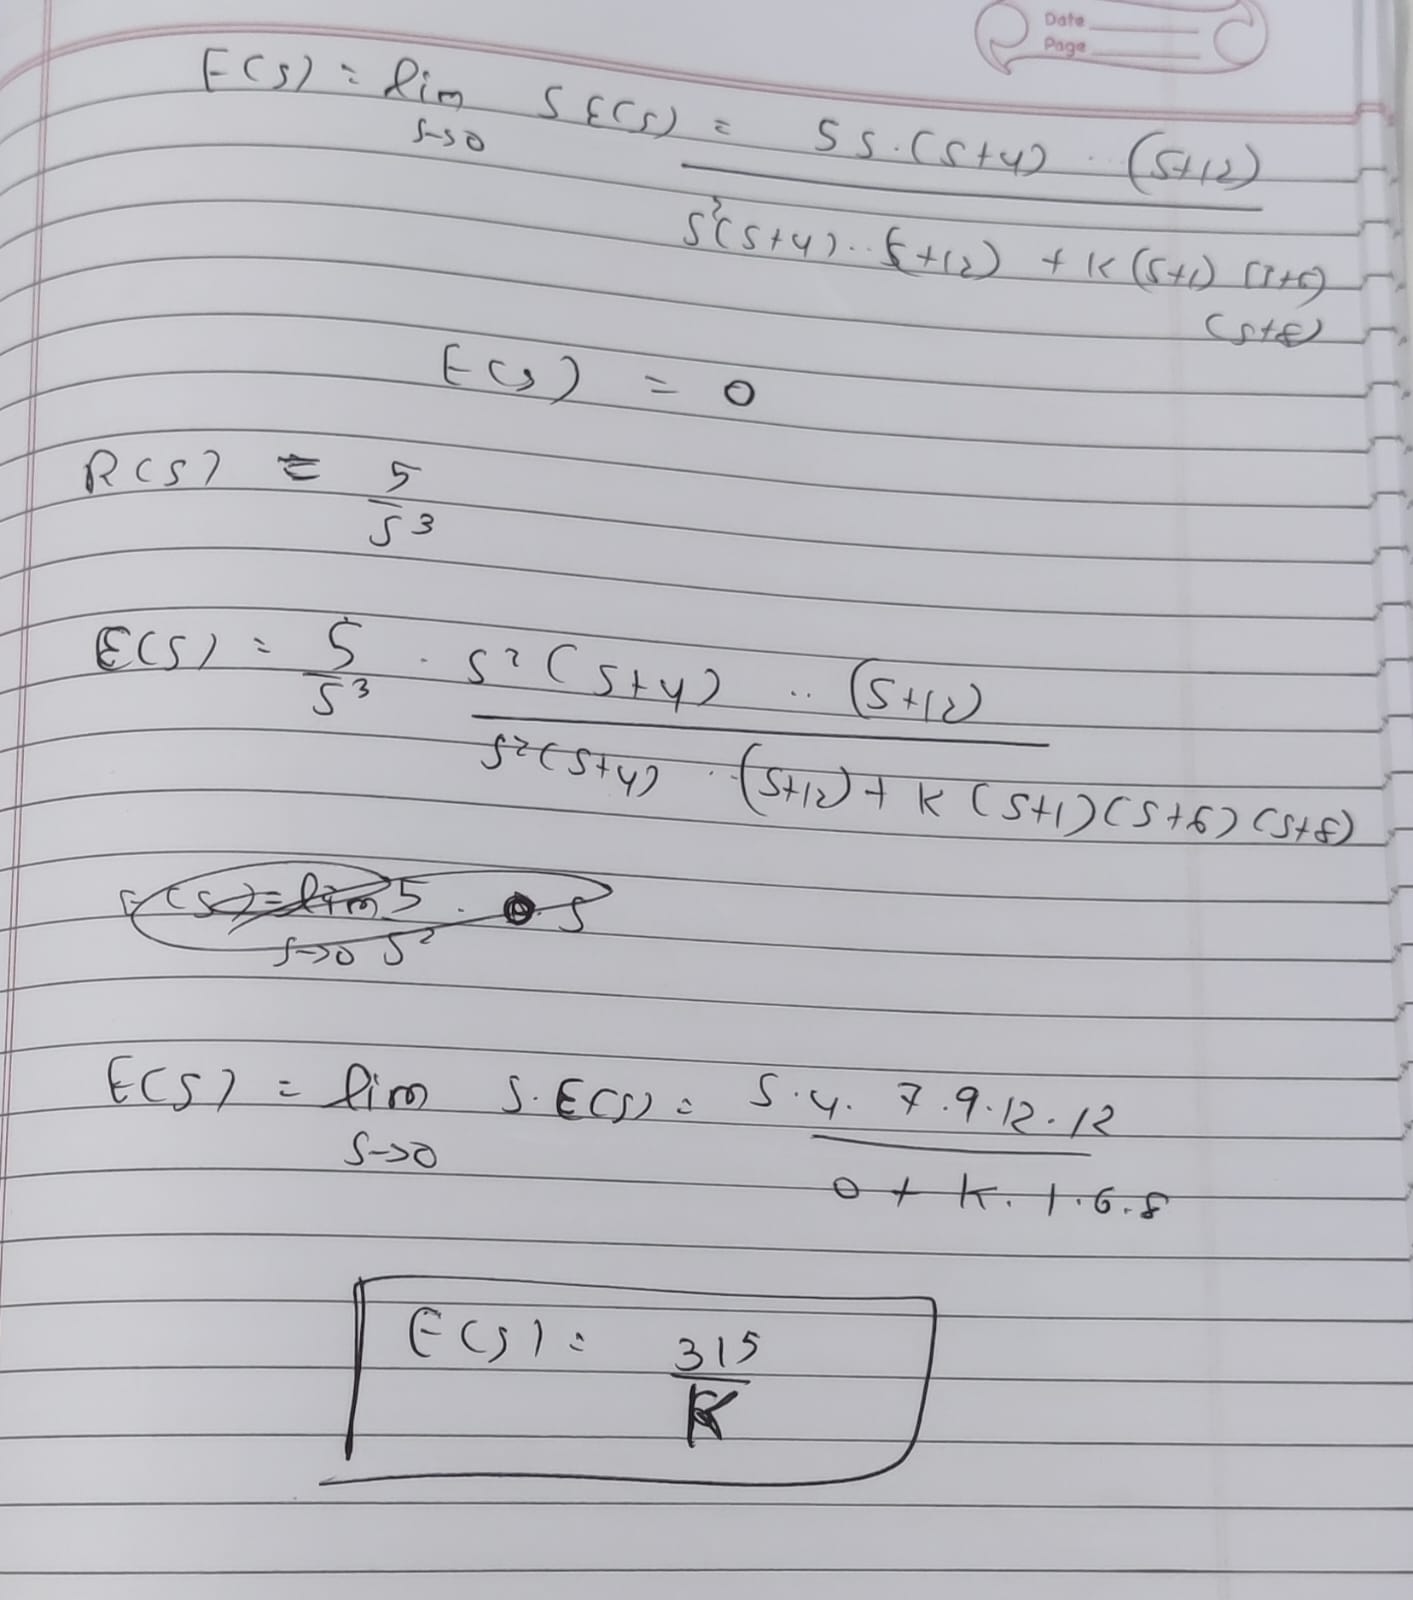 Date
Page
E(s) = lim s→0 S E(s) = 5s.(s+4) .. (s+12)
s²(s+4)..(s+12) + K(s+1)(s+6)
(s+8)
E(s) = 0
R(s) = 5/s³
E(s) = 5/s³ . s²(s+4) .. (s+12)
s²(s+4) .. (s+12) + K(s+1)(s+6)(s+8)
E(s) = lim s→0 5/s² . s
E(s) = lim s→0 s.E(s) = 5.4.7.9.12.12
0 + K.1.6.8
E(s) = 315/K